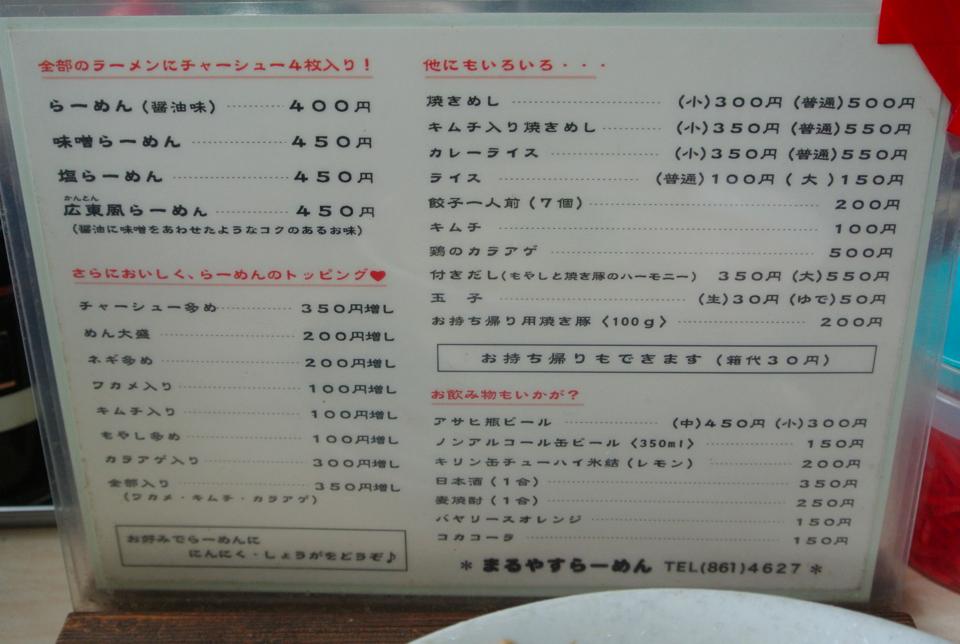 全部のラーメンにチャーシュー4枚入り！
らーめん（醤油味）………400円
味噌らーめん………450円
塩らーめん………450円
かんとん
広東風らーめん………450円
（醤油に味噌をあわせたようなコクのあるお味）
さらにおいしく、らーめんのトッピング♥
チャーシュー多め………350円増し
めん大盛………200円増し
ネギ多め………200円増し
ワカメ入り………100円増し
キムチ入り………100円増し
もやし多め………100円増し
カラアゲ入り………300円増し
全部入り………350円増し
（ワカメ・キムチ・カラアゲ）
お好みでらーめんに
にんにく・しょうがをどうぞ♪
他にもいろいろ・・・
焼きめし………（小）300円（普通）500円
キムチ入り焼きめし………（小）350円（普通）550円
カレーライス………（小）350円（普通）550円
ライス………（普通）100円（大）150円
餃子一人前（7個）………200円
キムチ………100円
鶏のカラアゲ………500円
付きだし（もやしと焼き豚のハーモニー） 350円（大）550円
玉　子………（生）30円（ゆで）50円
お持ち帰り用焼き豚〈100ｇ〉………200円
お持ち帰りもできます（箱代30円）
お飲み物もいかが？
アサヒ瓶ビール………（中）450円（小）300円
ノンアルコール缶ビール〈350ml〉………150円
キリン缶チューハイ氷結（レモン）………200円
日本酒（1合）………350円
麦焼酎（1合）………250円
バヤリースオレンジ………150円
コカコーラ………150円
＊ まるやすらーめん TEL(861)4627 ＊